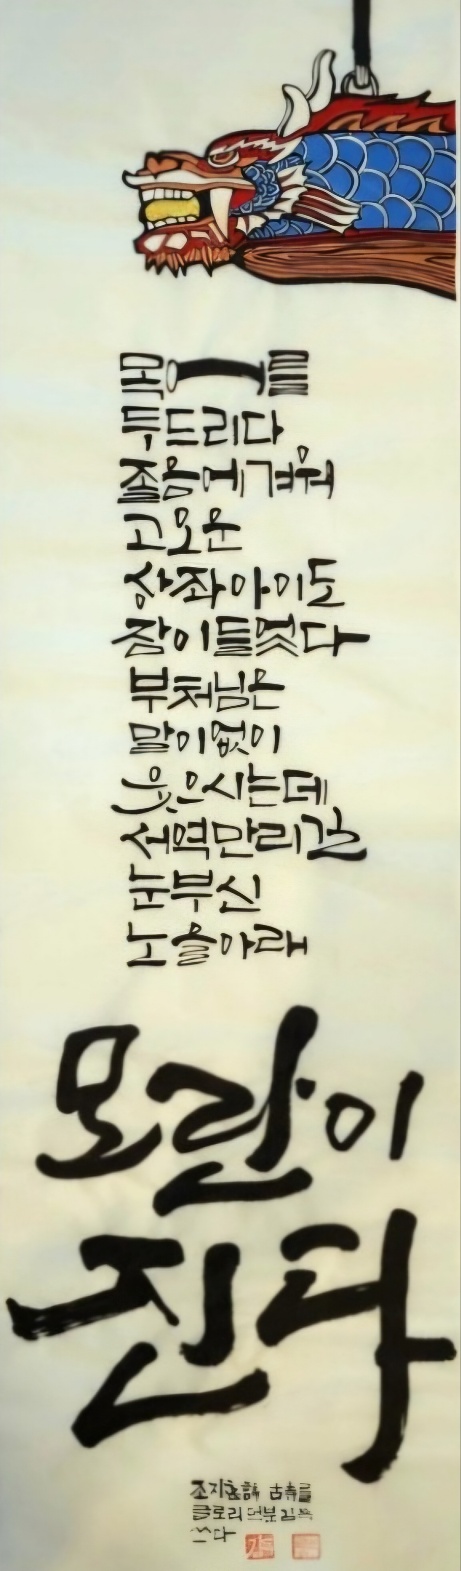 목어를
두드리다
졸음에 겨워
고오운
상좌아이도
잠이 들었다
부처님은
말이 없이
웃으시는데
서역만리길
눈부신
노을아래
모란이
진다
조지훈 詩 古寺를
글로리
쓰다